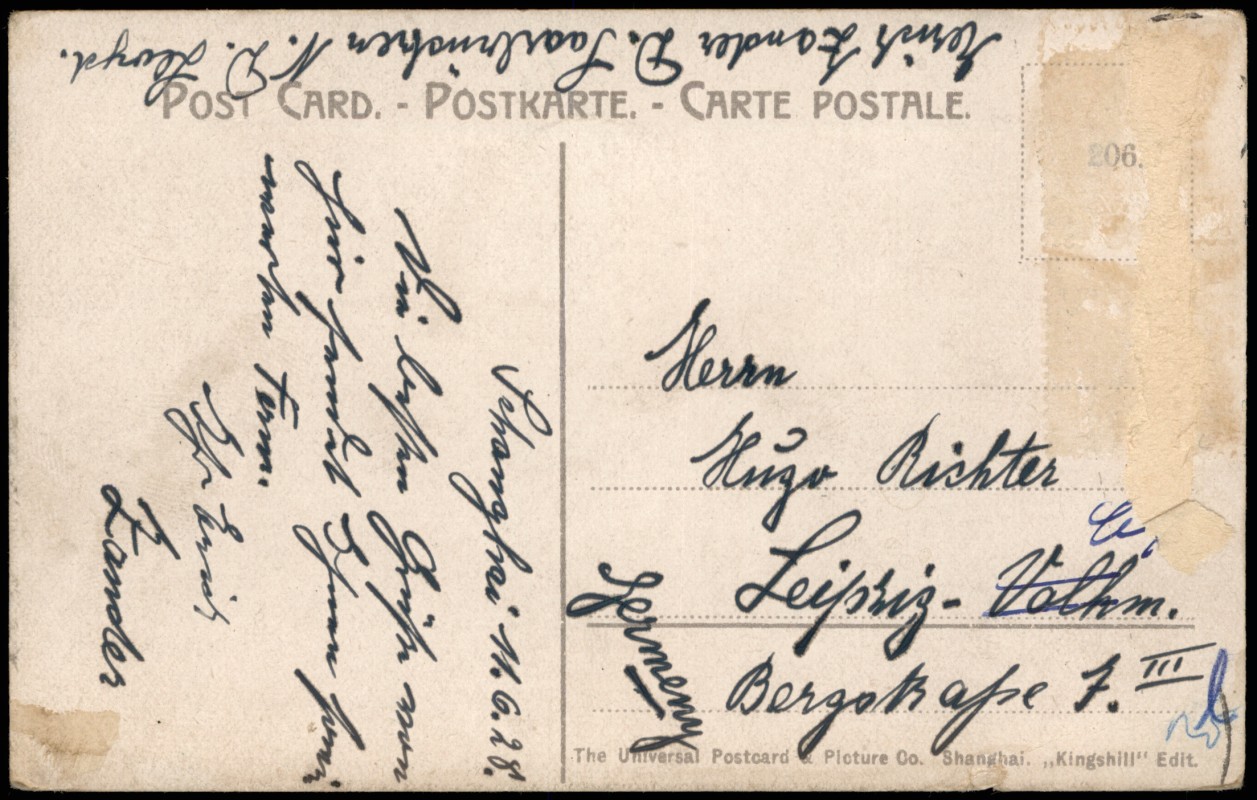 Erich Zander D. Saarbrücken N. D. Lloyd.
POST CARD. - POSTKARTE. - CARTE POSTALE.
206.
Schanghai 11.6.28.
Die besten Grüße von
hier sendet Ihnen
Ihr Erich
Zander
Herrn
Hugo Richter
Leipzig- Volkm.
Bergstraße 7. III
Germeny
The Universal Postcard & Picture Co. Shanghai. „Kingshill" Edit.